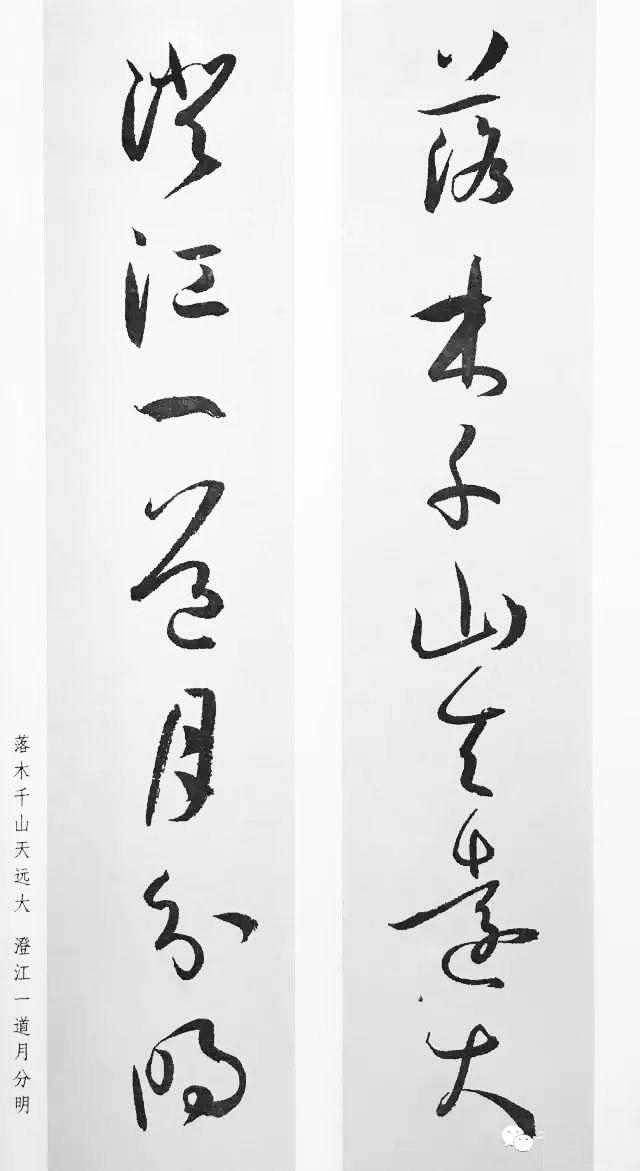 落木千山天遠大
澄江一道月分明
落木千山天远大 澄江一道月分明